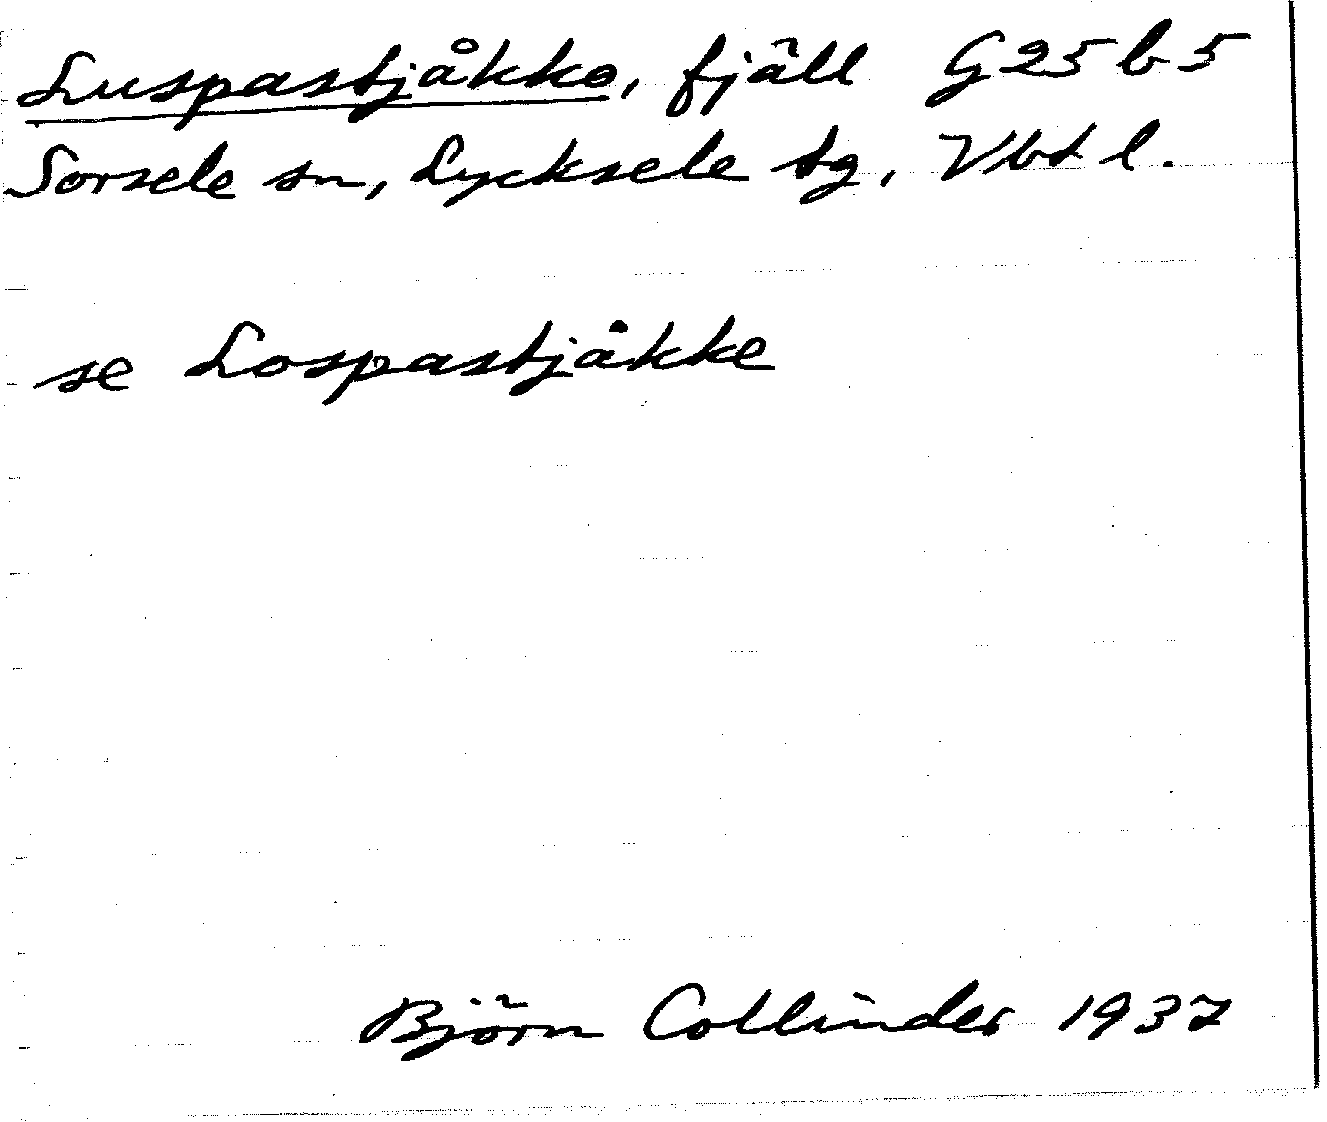 Luspastjåkko, fjäll G25b5
Sorsele sn, Lycksele tg, Vbt l.
se Lospastjåkke
Björn Collinder 1937